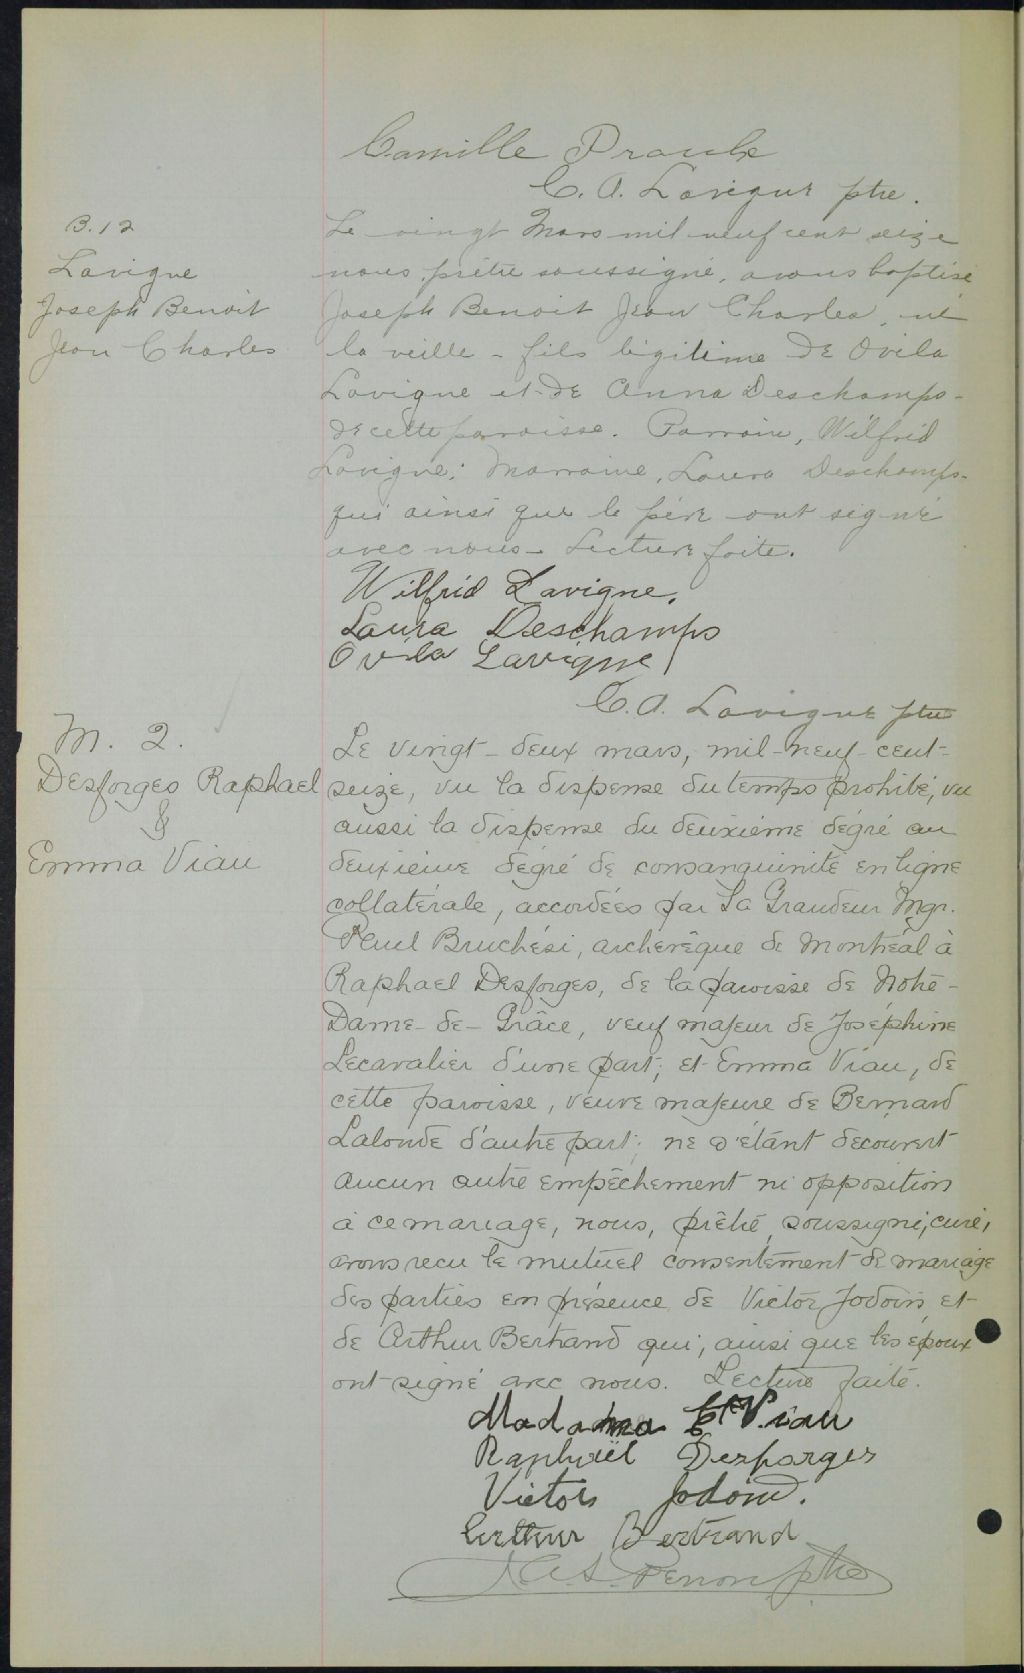 Camille Proulx
C. A. Lavigne ptre.
B. 12
Lavigne
Joseph Benoit
Jean Charles
Le vingt Mars mil neuf cent seize
nous prêtre soussigné, avons baptisé
Joseph Benoit Jean Charles, né
la veille - fils légitime de Ovila
Lavigne et de Anna Deschamps -
de cette paroisse. Parrain, Wilfrid
Lavigne; Marraine, Laura Deschamps -
qui ainsi que le père ont signé
avec nous - Lecture faite.
Wilfrid Lavigne.
Laura Deschamps
Ovila Lavigne
C. A. Lavigne ptre
M. 2.
Desforges Raphael
&
Emma Viau
Le vingt-deux mars, mil-neuf-cent-
seize, vu la dispense du temps prohibé, vu
aussi la dispense du deuxième dégré au
deuxième dégré de consanguinité en ligne
collatérale, accordées par Sa Grandeur Mgr.
Paul Bruchési, archevêque de Montréal à
Raphael Desforges, de la paroisse de Notre-
Dame-de-Grâce, veuf majeur de Joséphine
Lecavalier d'une part; et Emma Viau, de
cette paroisse, veuve majeure de Bernard
Lalonde d'autre part; ne s'étant découvert
aucun autre empêchement ni opposition
à ce mariage, nous, prêtre, soussigné, curé,
avons recu le mutuel consentement de mariage
des parties en présence de Victor Jodoin et
de Arthur Bertrand qui, ainsi que les époux
ont signé avec nous. Lecture faite.
Madame Viau
Raphaël Desforges
Victor Jodoin.
Arthur Bertrand
J. A. S. Perron ptre